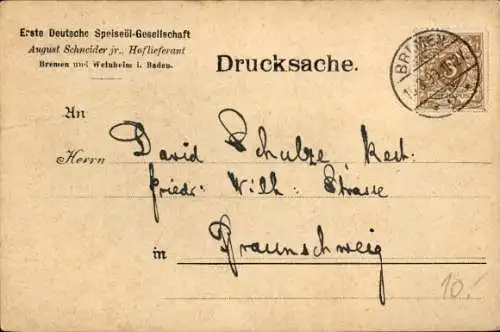 Erste Deutsche Speiseöl-Gesellschaft
August Schneider jr., Hoflieferant
Bremen und Weinheim i. Baden.
Drucksache.
BREMEN
3
An
Herrn David Schulze, Rest.
Friedr. Wilh. Strasse
in Braunschweig
10.-